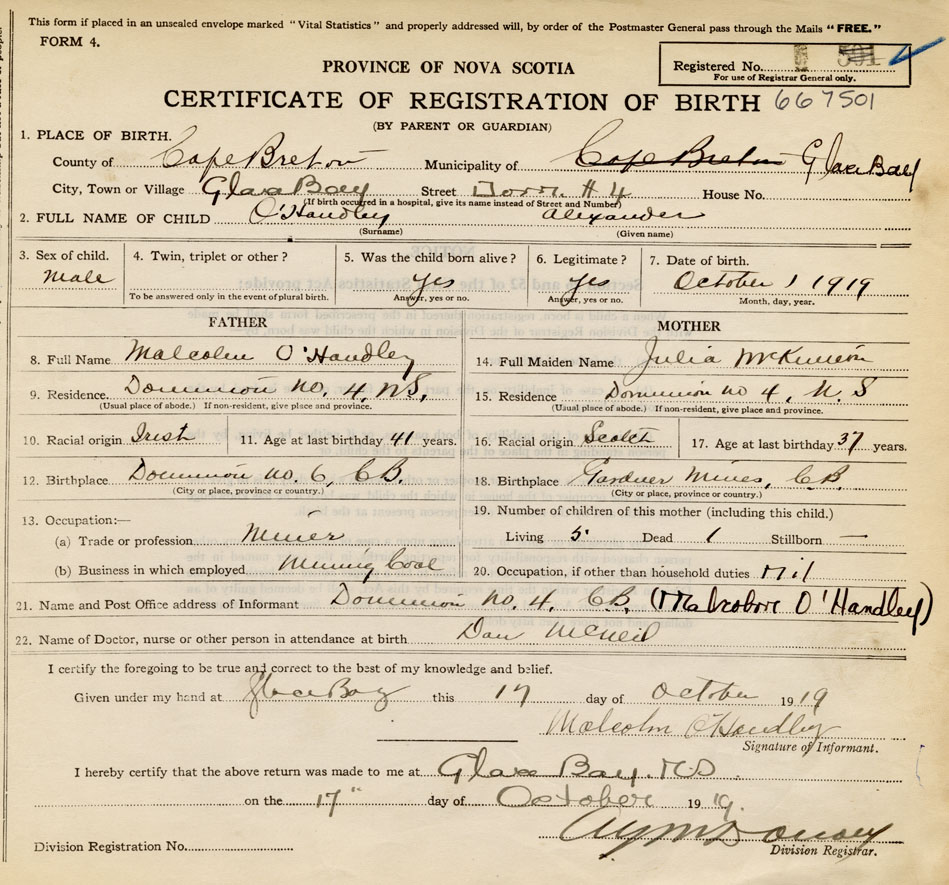 This form if placed in an unsealed envelope marked "Vital Statistics" and properly addressed will, by order of the Postmaster General pass through the Mails "FREE."
FORM 4.
Registered No. 501
For use of Registrar General only.
PROVINCE OF NOVA SCOTIA
CERTIFICATE OF REGISTRATION OF BIRTH 667501
(BY PARENT OR GUARDIAN)
1. PLACE OF BIRTH.
County of Cape Breton Municipality of Cape Breton Glace Bay
City, Town or Village Glace Bay Street Dom. #4 House No.
(If birth occurred in a hospital, give its name instead of Street and Number)
2. FULL NAME OF CHILD O'Handley Alexander
(Surname) (Given name)
3. Sex of child. 4. Twin, triplet or other? 5. Was the child born alive? 6. Legitimate? 7. Date of birth.
Male yes yes October 1 1919
To be answered only in the event of plural birth. Answer, yes or no. Answer, yes or no. Month, day, year.
FATHER
8. Full Name Malcolm O'Handley
9. Residence Dominion no. 4, N.S.
(Usual place of abode.) If non-resident, give place and province.
10. Racial origin Irish 11. Age at last birthday 41 years.
12. Birthplace Dominion no. 6, C.B.
(City or place, province or country.)
13. Occupation:—
(a) Trade or profession Miner
(b) Business in which employed Mining Coal
MOTHER
14. Full Maiden Name Julia McKinnon
15. Residence Dominion no 4, N.S
(Usual place of abode.) If non-resident, give place and province.
16. Racial origin Scotch 17. Age at last birthday 37 years.
18. Birthplace Gardner Mines, C.B.
(City or place, province or country.)
19. Number of children of this mother (including this child.)
Living 5 Dead 1 Stillborn —
20. Occupation, if other than household duties Nil
21. Name and Post Office address of Informant Dominion No. 4. C.B. (Malcolm O'Handley)
22. Name of Doctor, nurse or other person in attendance at birth Dan McNeil
I certify the foregoing to be true and correct to the best of my knowledge and belief.
Given under my hand at Glace Bay this 17 day of October 1919
Malcolm O'Handley
Signature of Informant.
I hereby certify that the above return was made to me at Glace Bay. N.S.
on the 17" day of October 1919.
Division Registration No.
Division Registrar.